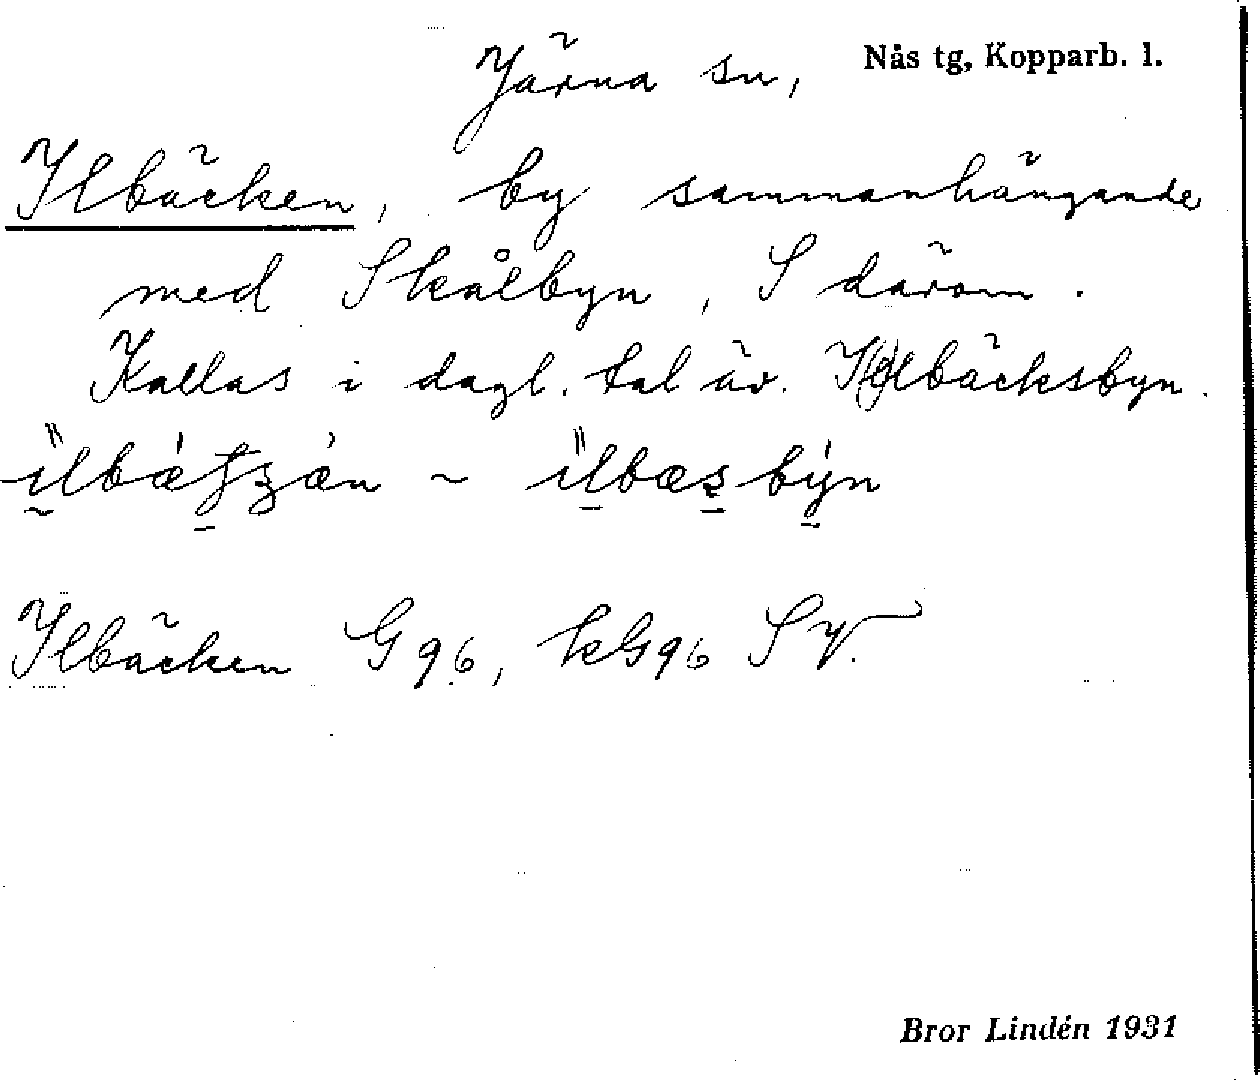 Järna sn, Nås tg, Kopparb. l.
Ilbäcken, by sammanhängande
med Skålbyn, S därom.
Kallas i dagl. tal äv. Ilbäcksbyn.
Ilbäcken G 96, kG96 SV.
Bror Lindén 1931